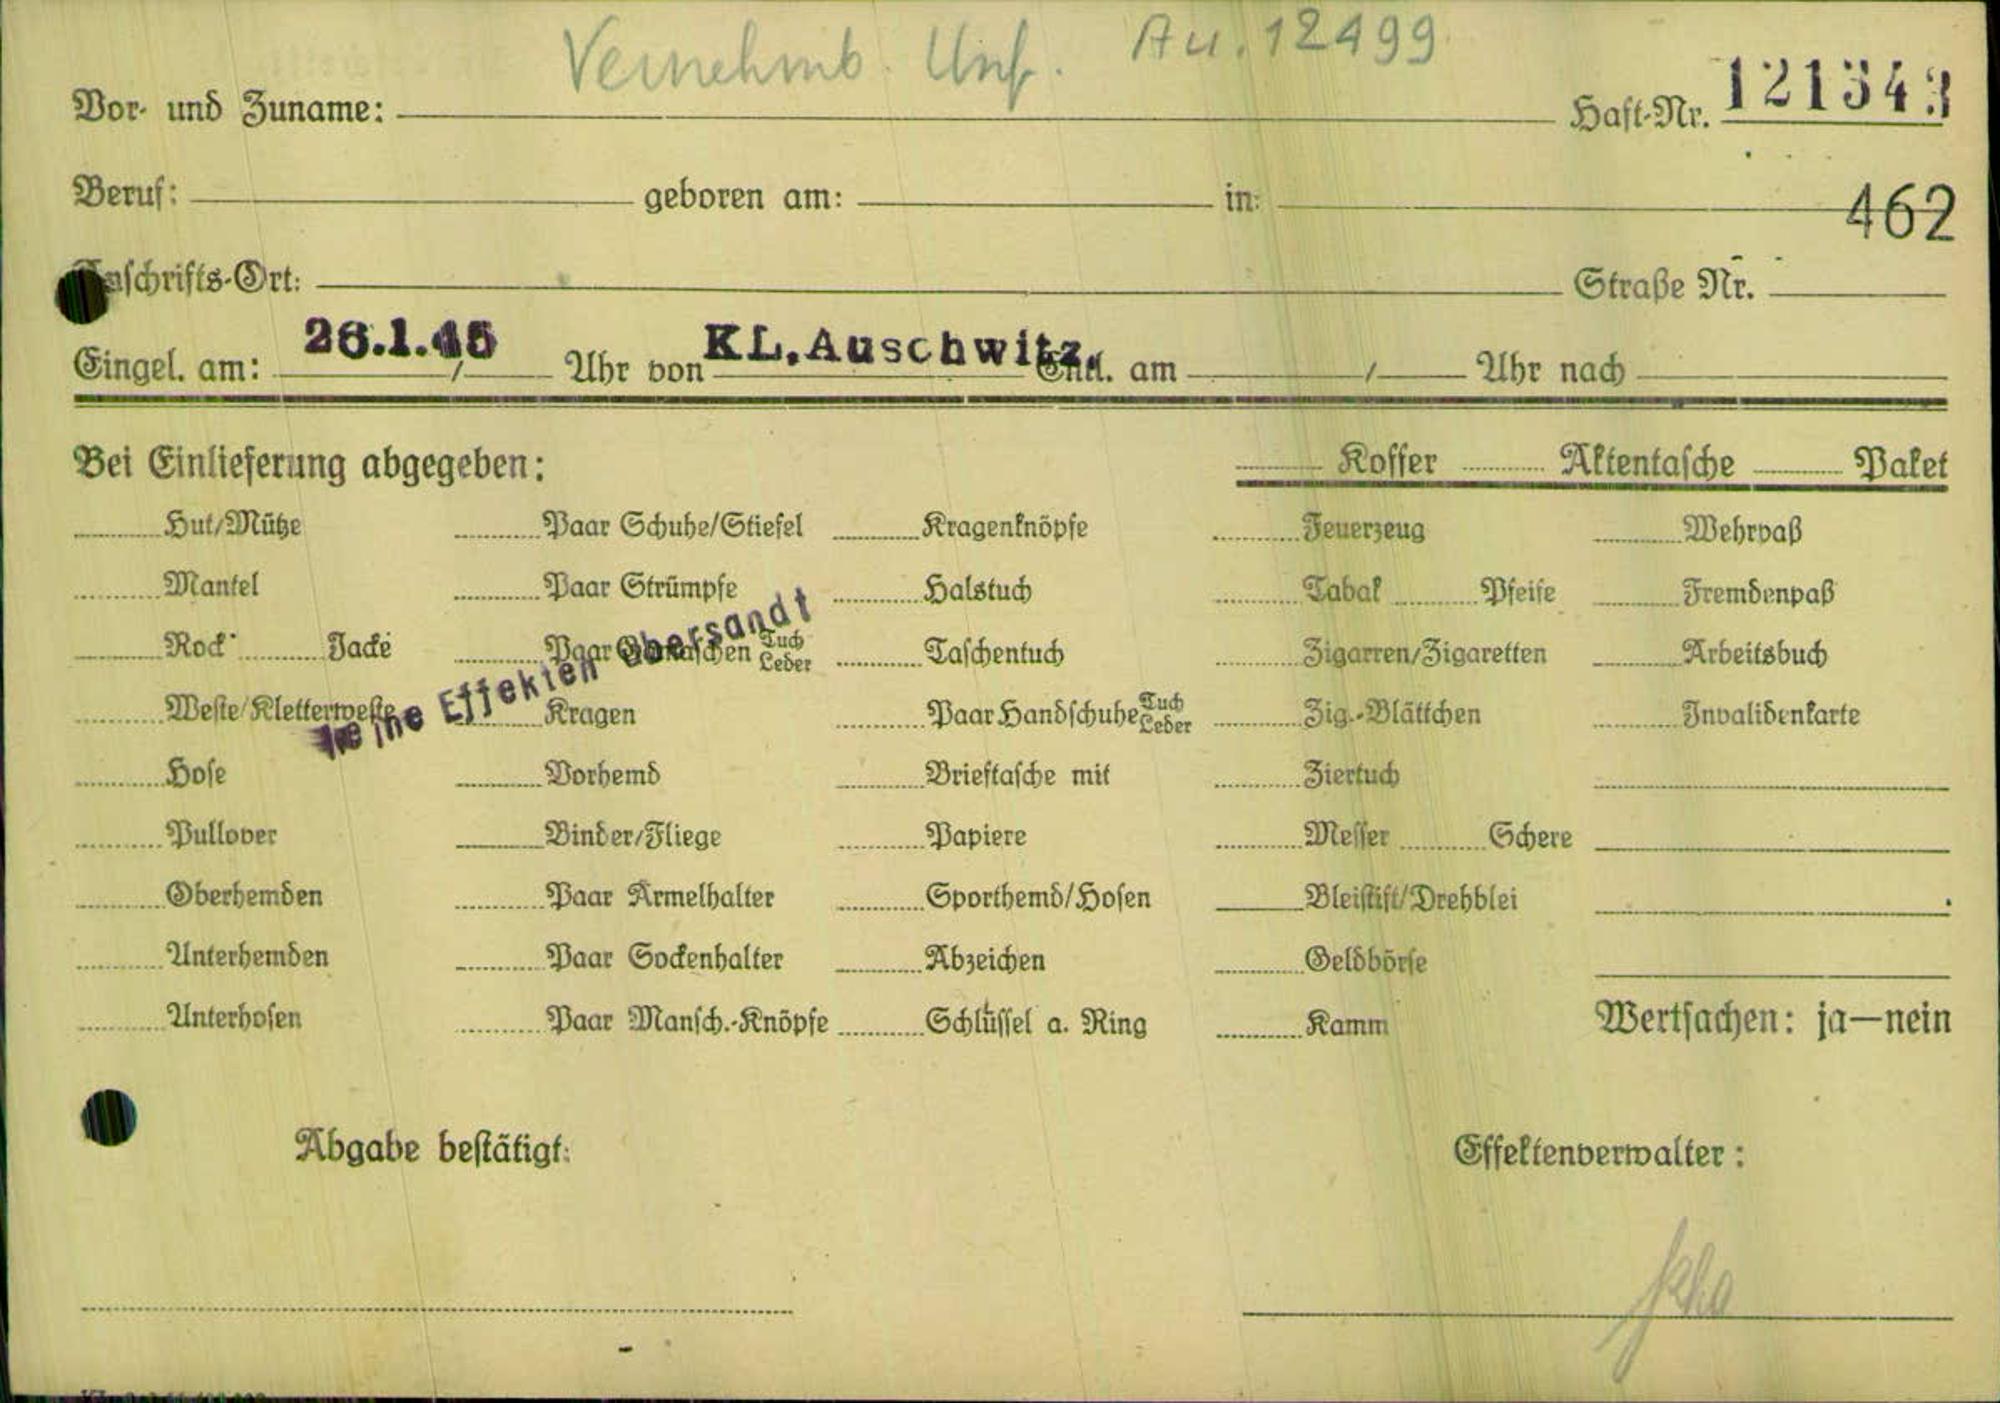 Vernehmb. Unf. Au. 12499
Vor- und Zuname: Haft-Nr. 121343
Beruf: geboren am: in: 462
Anschrifts-Ort: Straße Nr.
Eingel. am: 26.1.45 / Uhr von KL. Auschwitz. Entl. am / Uhr nach
Bei Einlieferung abgegeben: Koffer Aktentasche Paket
Hut/Mütze Paar Schuhe/Stiefel Kragenknöpfe Feuerzeug Wehrpaß
Mantel Paar Strümpfe Halstuch Tabak Pfeife Fremdenpaß
Rock Jacke Paar Gamaschen Tuch Leder Taschentuch Zigarren/Zigaretten Arbeitsbuch
Weste/Kletterweste Kragen Paar Handschuhe Tuch Leder Zig.-Blättchen Invalidenkarte
keine Effekten übersandt
Hose Vorhemd Brieftasche mit Ziertuch
Pullover Binder/Fliege Papiere Messer Schere
Oberhemden Paar Ärmelhalter Sporthemd/Hosen Bleistift/Drehblei
Unterhemden Paar Sockenhalter Abzeichen Geldbörse
Unterhosen Paar Mansch.-Knöpfe Schlüssel a. Ring Kamm Wertsachen: ja—nein
Abgabe bestätigt: Effektenverwalter: